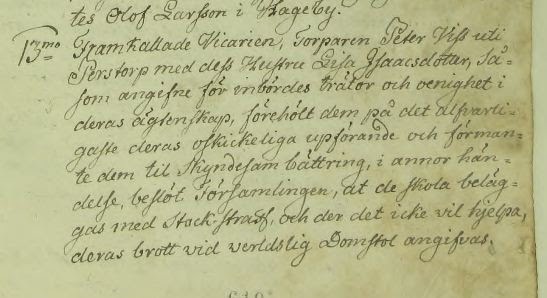 tes Olof Larsson i Hageby.
13mo Framkallade Vicarien, Torparen Peter Viss uti
Perstorp med dess Hustru Lisa Isaacsdotter, så-
som angifne för inbördes trätor och oenighet i
deras ägtenskap, förehölt dem på det alfvarli-
gaste deras oskickeliga upförande och förman-
te dem til skyndesam bättring, i annor hän-
delse, beslöt Församlingen, at de skola beläg-
gas med Stock-straff, och der det icke vil hjelpa,
deras brott vid verldslig Domstol angifvas.